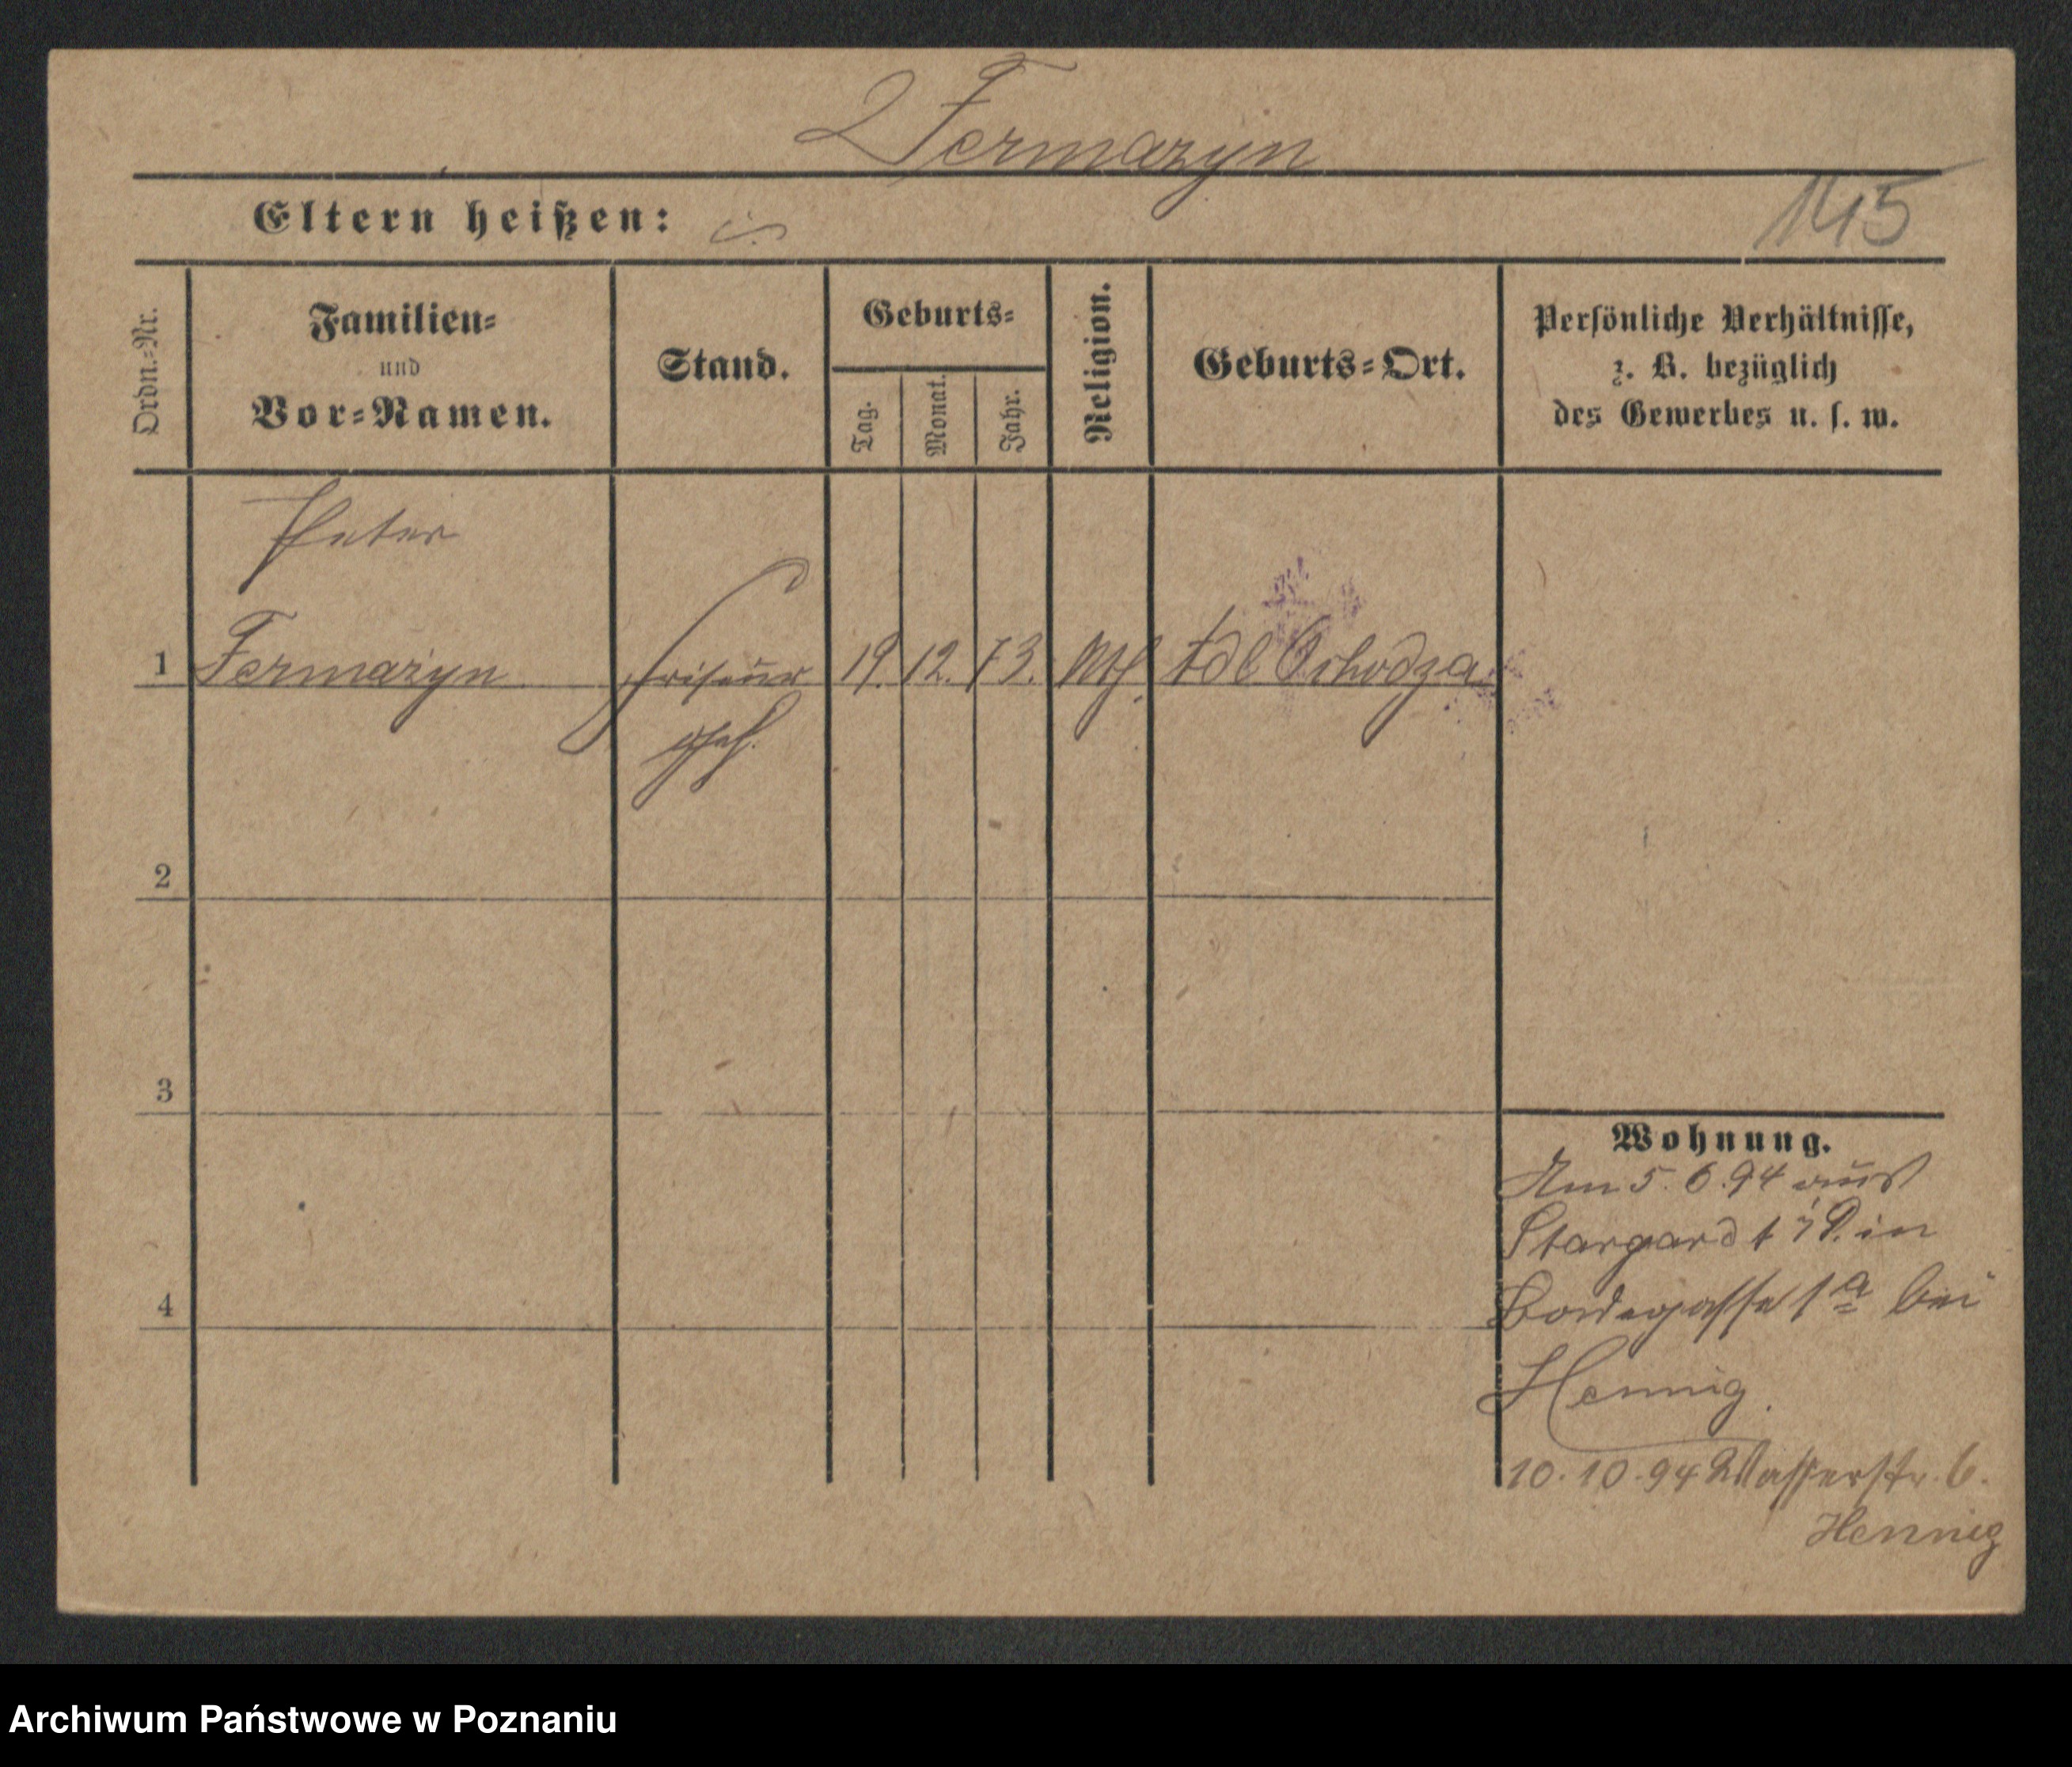 Fermazyn
Eltern heißen:
145
Ordn.-Nr.
Familien-
und
Vor-Namen.
Stand.
Geburts-
Tag.
Monat.
Jahr.
Religion.
Geburts-Ort.
Persönliche Verhältnisse,
z. B. bezüglich
des Gewerbes u. s. w.
Peter
1 Fermazyn Friseur 19. 12. 73. kth. Adl
geh.
2
3
4
Wohnung.
Am 5. 6. 94 aus
Stargard i P. in
1a bei
Hennig
10. 10. 94 Wasserstr. 6.
Hennig
Archiwum Państwowe w Poznaniu